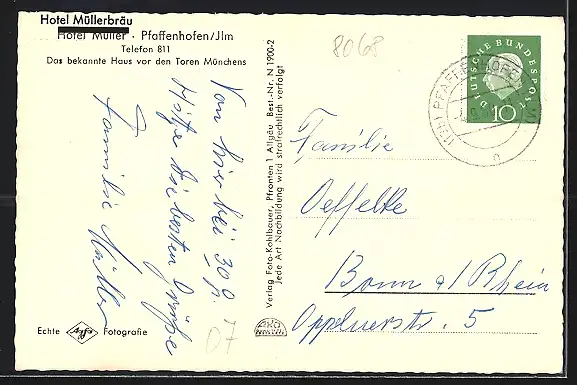 Hotel Müllerbräu
Hotel Müller - Pfaffenhofen/Jlm
Telefon 811
Das bekannte Haus vor den Toren Münchens
8068
DEUTSCHE BUNDESPOST
10
Von hier bei 30 gr.
Hitze die besten Grüße
Familie Müller
Verlag Foto-Kohlbauer, Pfronten 1 Allgäu Best.-Nr. N 1900-2
Jede Art Nachbildung wird strafrechtlich verfolgt
Familie
Oeffelke
Bonn a/Rhein
Oppelnerstr. 5
Echte Agfa Fotografie
07